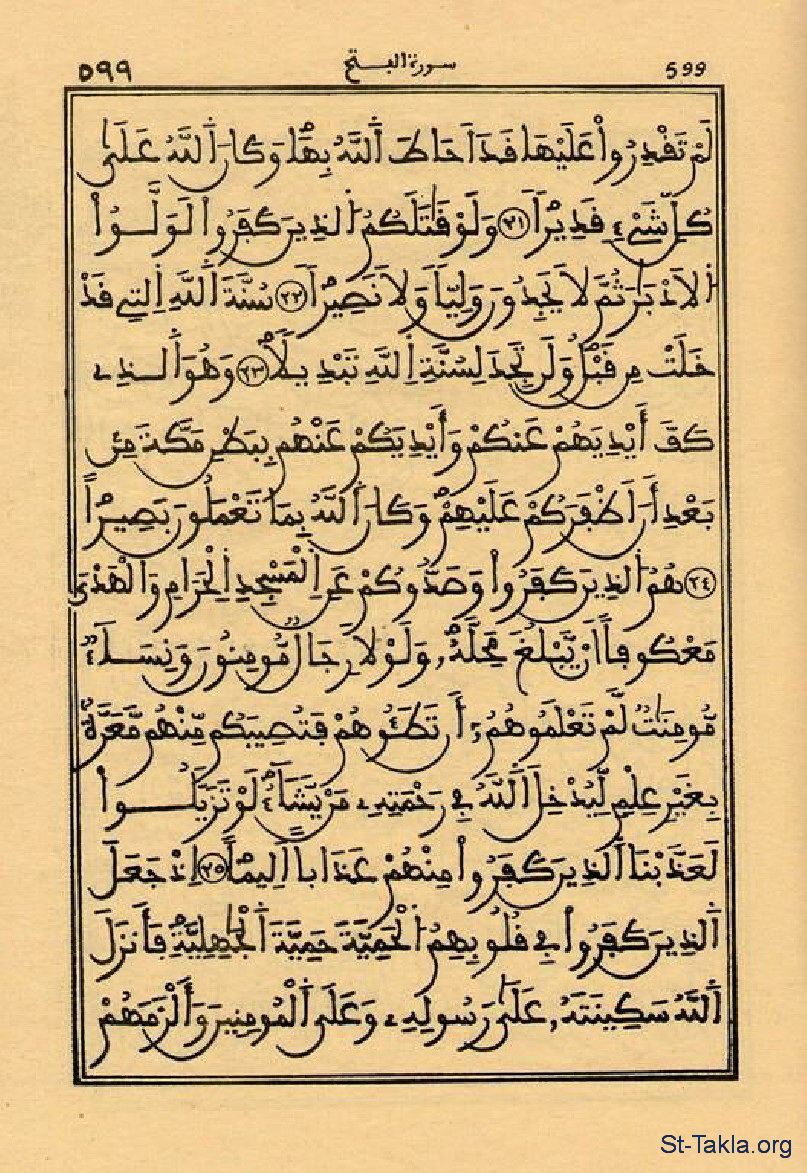 599 سورة الفتح ٥٩٩
لَمْ تَقْدِرُواْ عَلَيْهَا قَدَ اَحَاطَ اَ۬للَّهُ بِهَاۖ وَكَانَ اَ۬للَّهُ عَلَيٰ
كُلِّ شَےْءٖ قَدِيراٗۖ ٢١ وَلَوْ قَٰتَلَكُمُ اُ۬لذِينَ كَفَرُواْ لَوَلَّوُاْ
اُ۬لَادْبَٰرَ ثُمَّ لَا يَجِدُونَ وَلِيّاٗ وَلَا نَصِيراٗۖ ٢٢ سُنَّةَ اَ۬للَّهِ اِ۬لتِے قَدْ
خَلَتْ مِن قَبْلُۖ وَلَن تَجِدَ لِسُنَّةِ اِ۬للَّهِ تَبْدِيلاٗۖ ٢٣ وَهُوَ اَ۬لذِے
كَفَّ أَيْدِيَهُمْ عَنكُمْ وَأَيْدِيَكُمْ عَنْهُم بِبَطْنِ مَكَّةَ مِنۢ
بَعْدِ أَنَ اَظْفَرَكُمْ عَلَيْهِمْۖ وَكَانَ اَ۬للَّهُ بِمَا تَعْمَلُونَ بَصِيراًۖ
٢٤ هُمُ اُ۬لذِينَ كَفَرُواْ وَصَدُّوكُمْ عَنِ اِ۬لْمَسْجِدِ اِ۬لْحَرَامِ وَالْهَدْيَ
مَعْكُوفاً اَنْ يَّبْلُغَ مَحِلَّهُۥۖ وَلَوْلَا رِجَالٞ مُّومِنُونَ وَنِسَآءٞ
مُّومِنَٰتٞ لَّمْ تَعْلَمُوهُمُۥٓ أَن تَطَـُٔوهُمْ فَتُصِيبَكُم مِّنْهُم مَّعَرَّةُۢ
بِغَيْرِ عِلْمٖ لِّيُدْخِلَ اَ۬للَّهُ فِے رَحْمَتِهِۦ مَنْ يَّشَآءُۖ لَوْ تَزَيَّلُواْ
لَعَذَّبْنَا اَ۬لذِينَ كَفَرُواْ مِنْهُمْ عَذَاباً اَلِيماًۖ ٢٥ اِذْ جَعَلَ
اَ۬لذِينَ كَفَرُواْ فِے قُلُوبِهِمُ اُ۬لْحَمِيَّةَ حَمِيَّةَ اَ۬لْجَٰهِلِيَّةِۖ فَأَنزَلَ
اَ۬للَّهُ سَكِينَتَهُۥ عَلَيٰ رَسُولِهِۦ وَعَلَي اَ۬لْمُومِنِينَ وَأَلْزَمَهُمْ
St-Takla.org